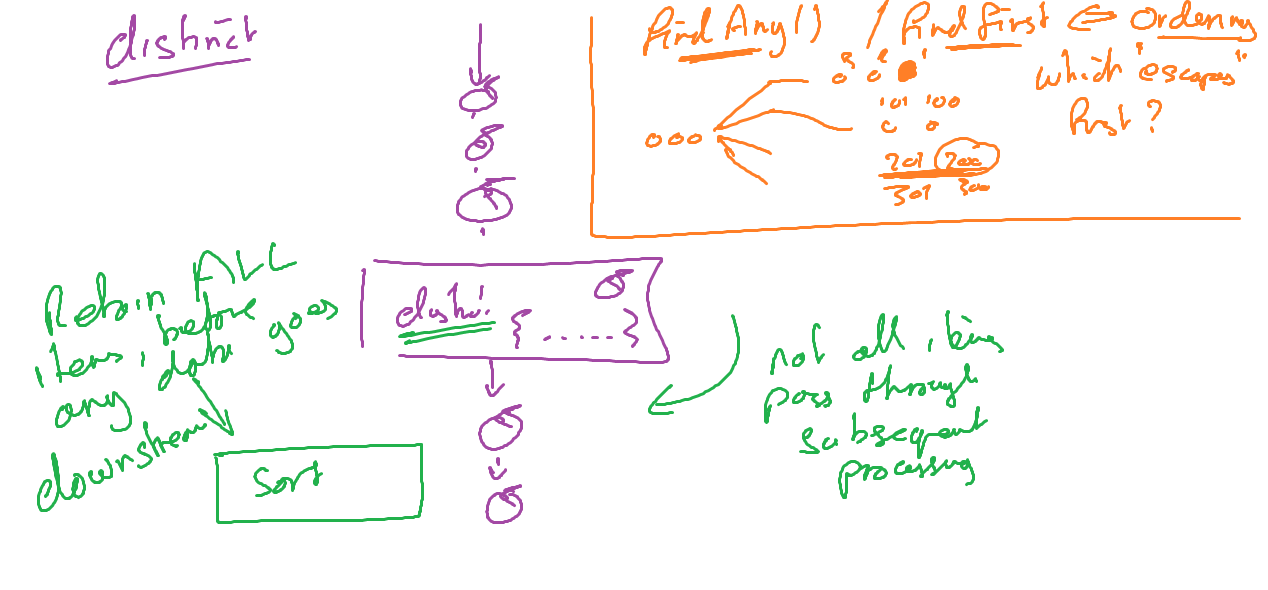 distinct
findAny() / findFirst <=> Ordering
which "escapes"
first?
3 2 1
101 100
201 200
301 300
Retain ALL
items, before
any data goes
downstream
Sort
{ ...... }
not all items
pass through
subsequent
processing